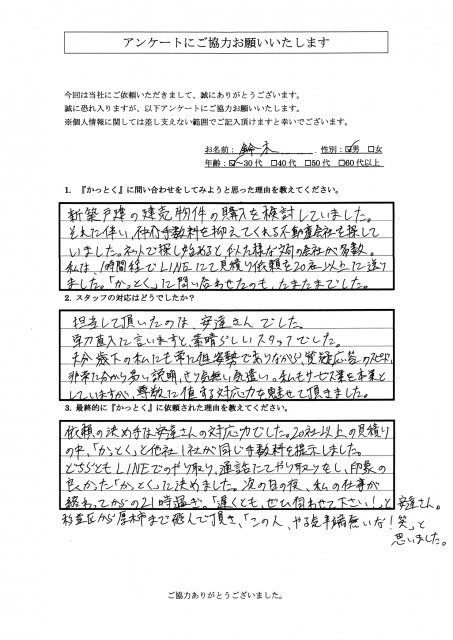 アンケートにご協力お願いいたします
今回は当社にご依頼いただきまして、誠にありがとうございます。
誠に恐れ入りますが、以下アンケートにご協力お願いいたします。
※個人情報に関しては差し支えない範囲でご記入頂けますと幸いでございます。
お名前： 鈴木 . 性別：☑男 □女
年齢：☑～30代 □40代 □50代 □60代以上
1. 『かっとく』に問い合わせをしてみようと思った理由を教えてください。
新築戸建の建売物件の購入を検討していました。
それに伴い、仲介手数料を抑えてくれる不動産会社を探して
いました。ネットで探し始めると、似た様な対応の会社が多数。
私は、1時間程でLINEにて見積り依頼を20社以上に送り
ました。「かっとく」に問い合わせたのも、たまたまでした。
2. スタッフの対応はどうでしたか？
担当して頂いたのは、安達さんでした。
単刀直入に言いますと、素晴らしいスタッフでした。
大分歳下の私にも常に低姿勢でありながら、質疑応答のスピード、
非常に分かり易い説明、さり気無い気遣い。私もサービス業を本業と
していますが、尊敬に値する対応力を魅せて頂きました。
3. 最終的に『かっとく』に依頼された理由を教えてください。
依頼の決め手は安達さんの対応力でした。20社以上の見積り
の中、「かっとく」と他社1社が同じ手数料を提示しました。
どちらともLINEでのやり取り、通話にてやり取りをし、印象の
良かった「かっとく」に決めました。次の日の夜、私の仕事が
終わってからの21時過ぎ。「遅くとも、ぜひ伺わせて下さい！」と安達さん。
杉並区から厚木まで飛んで頂き、「この人、やる気半端無いな！笑」と
思いました。
ご協力ありがとうございました。